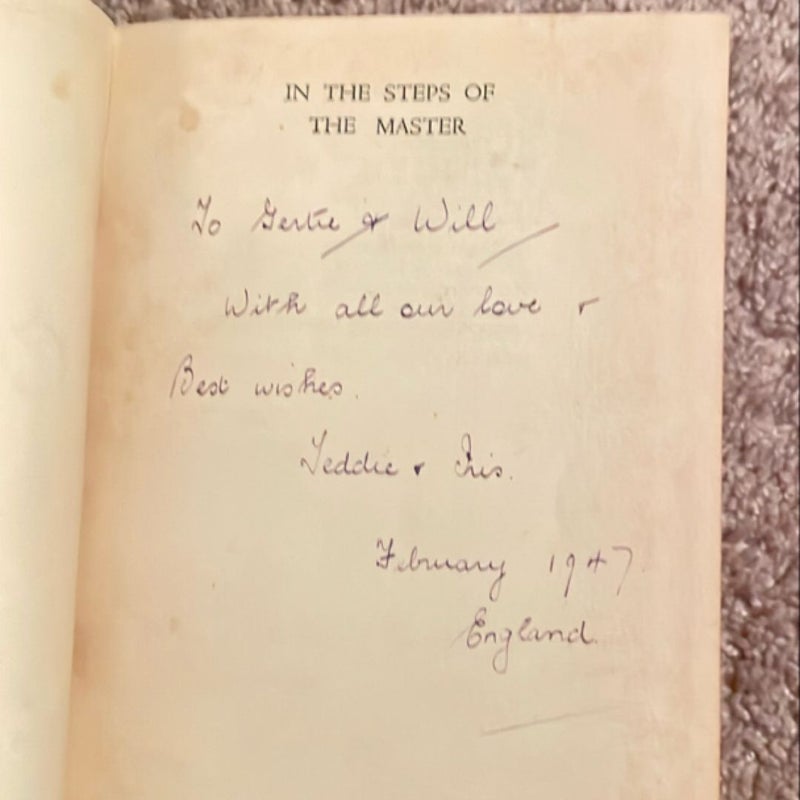 IN THE STEPS OF
THE MASTER
To Gertie & Will
With all our love &
Best wishes.
Teddie & Iris.
February 1947
England.